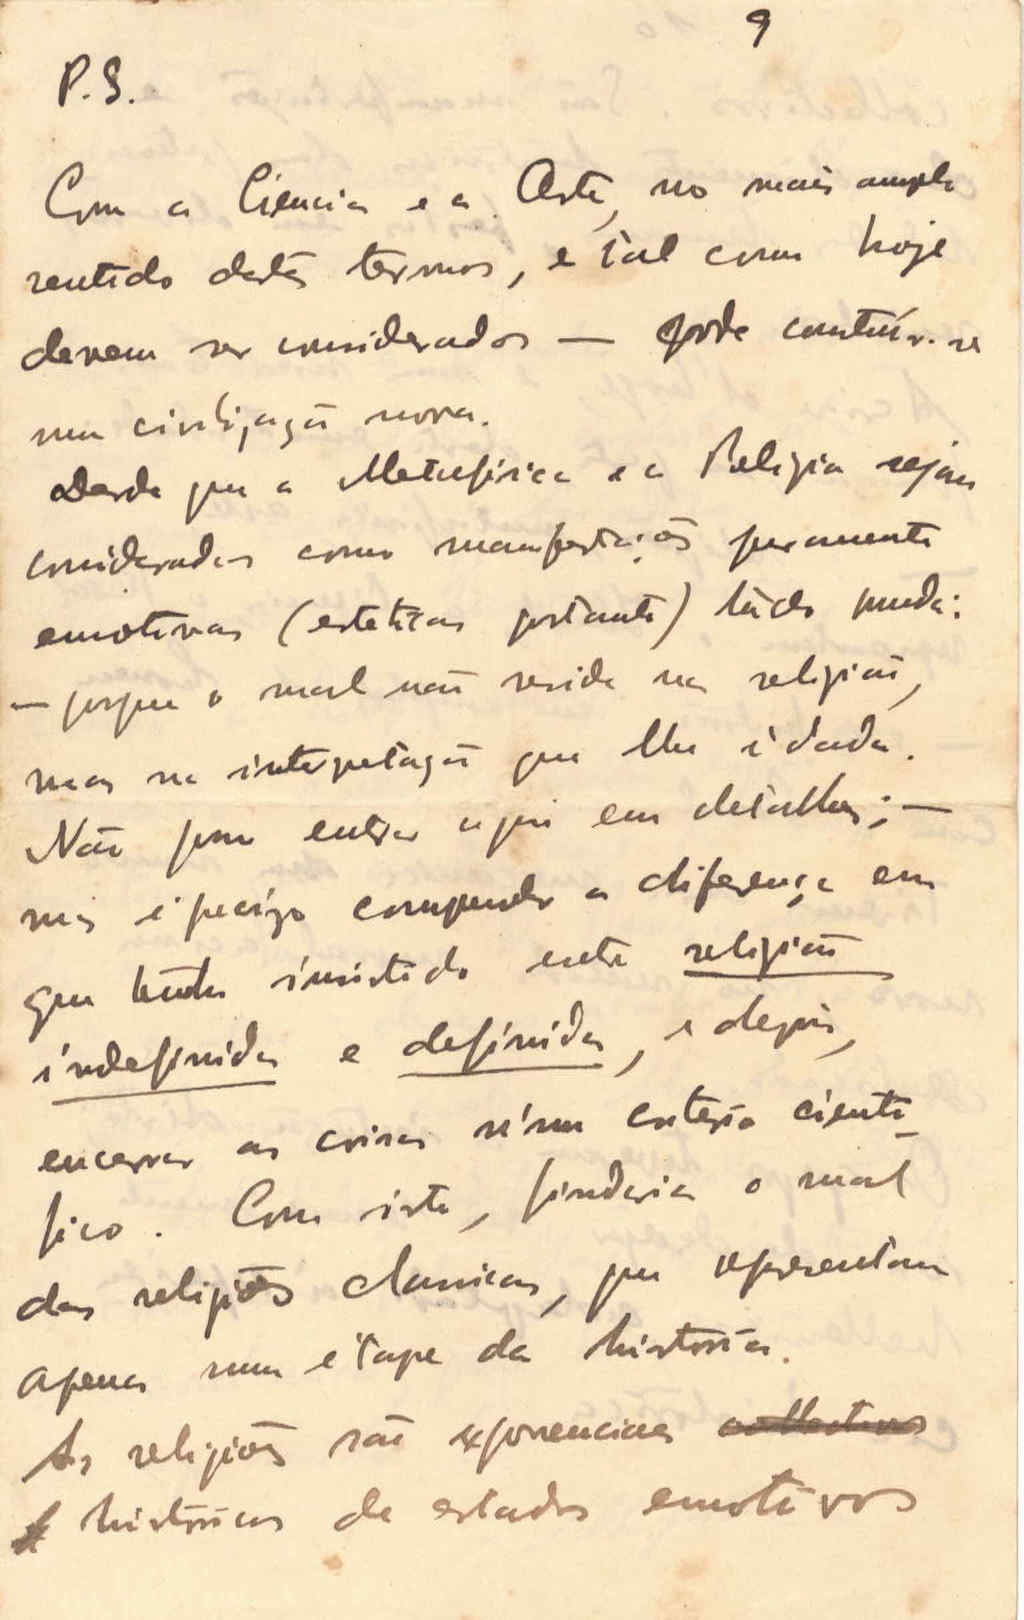 9
P.S.
Com a Ciencia e a Arte, no mais amplo
sentido destes termos, e tal como hoje
devem ser considerados — pode contruir-se
uma civilização nova.
Desde que a Metafisica e a Religião sejam
consideradas como manifestações puramente
emotivas (esteticas portanto) tudo muda:
— porque o mal não reside na religião,
mas na interpretação que lhe é dada.
Não posso entrar aqui em detalhes; —
mas é preciso compreender a diferença em
que tenho insistido entre religião
indefinida e definida, e depois,
encerrar as coisas n'um criterio cienti-
fico. Com isto, findaria o mal
das religiões classicas, que representam
apenas uma etape da historia.
As religiões são exponenciaes collectivos
historicos de estados emotivos